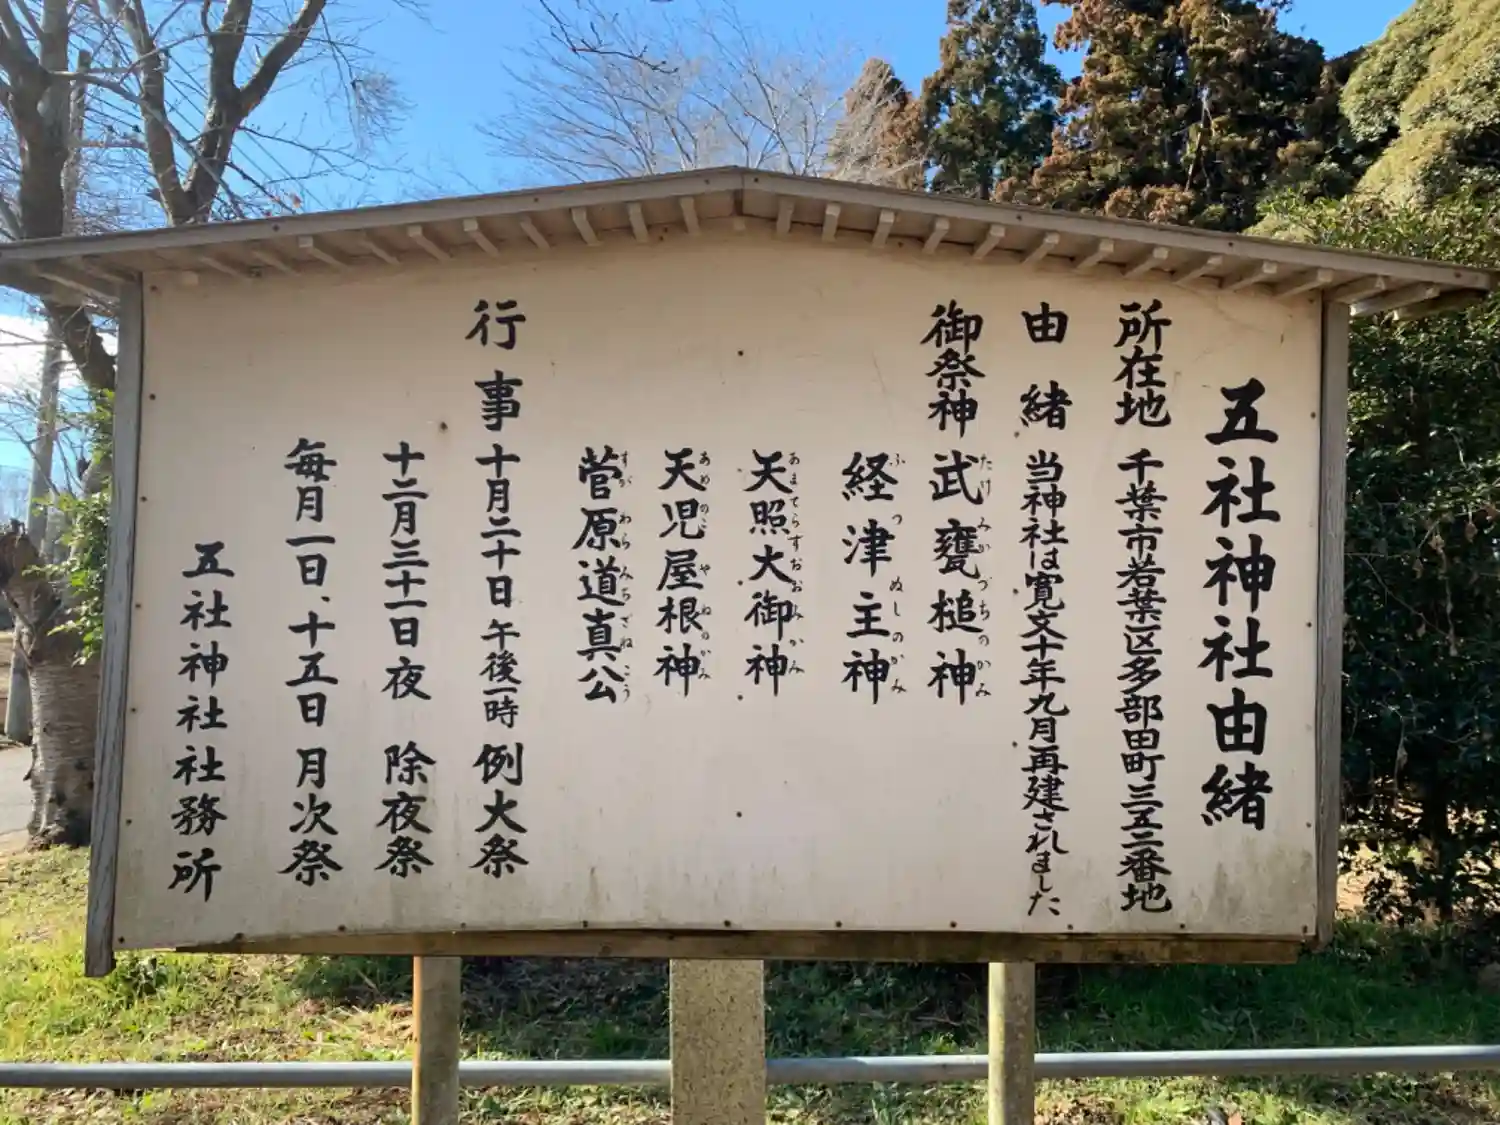 五社神社由緒
所在地 千葉市若葉区多部田町三五二番地
由緒 当神社は寛文十年九月再建されました
御祭神 武甕槌神
たけみかづちのかみ
経津主神
ふつぬしのかみ
天照大御神
あまてらすおおみかみ
天児屋根神
あめのこやねのかみ
菅原道真公
すがわらみちざねこう
行事 十月二十日午後一時 例大祭
十二月三十一日夜 除夜祭
毎月一日、十五日 月次祭
五社神社社務所